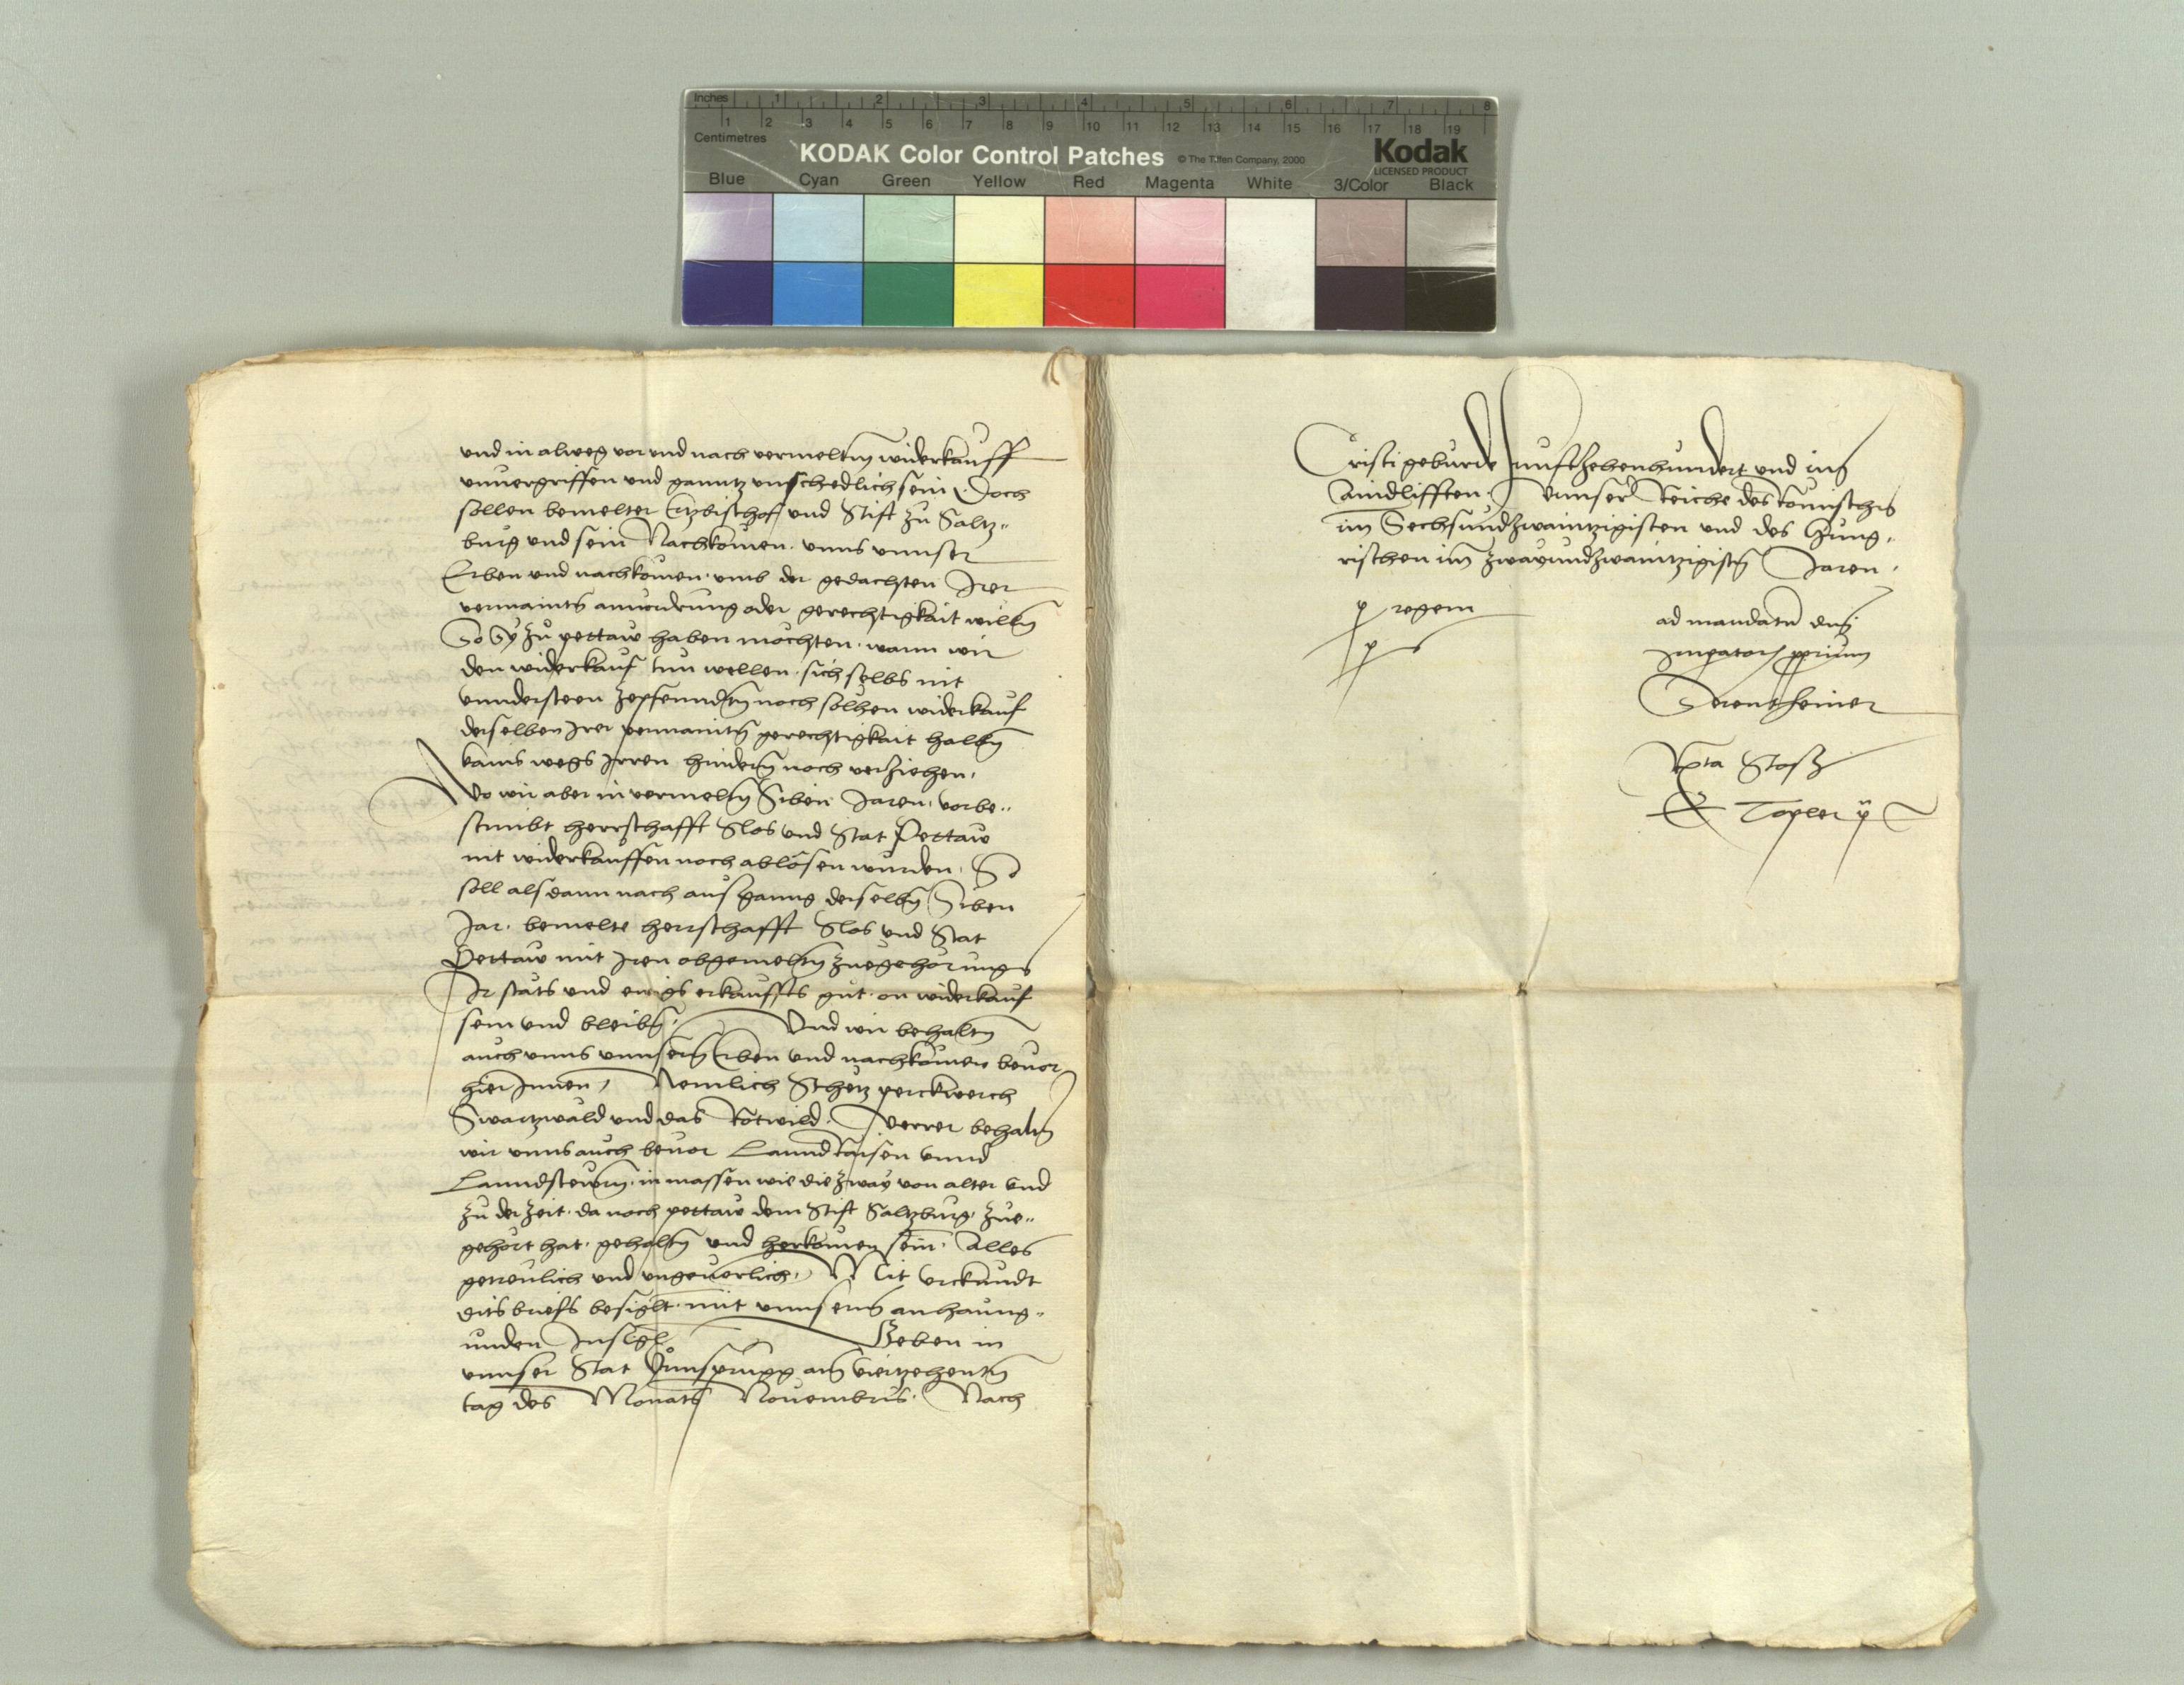 Inches 1 2 3 4 5 6 7 8
1 2 3 4 5 6 7 8 9 10 11 12 13 14 15 16 17 18 19
Centimetres
KODAK Color Control Patches © The Tiffen Company, 2000 Kodak
LICENSED PRODUCT
Blue Cyan Green Yellow Red Magenta White 3/Color Black
vnd in alweg vor vnd nach vermeltem widerkauff
vnuergriffen vnd ganntz vnschedlich sein. Doch
sollen bemelter Ertzbischof vnd Stift zu Saltz„
burg vnd sein Nachkomen. vnns vnnser
Erben vnd nachkomen. vmb der gedachten Irer
vermainten anuordrung oder gerechtigkait willen
So Sy zu pettaw haben mochten. wann wir
den widerkauf tun wellen. sich selbs nit
vnndersteen zepfennden noch solhen widerkauf
derselben Irer vermainten gerechtigkait halben
kains wegs Irren hindern noch verziehen.
Wo wir aber in vermelten Siben Jaren. vorbe„
stimbt herrschafft Slos vnd Stat Pettaw
nit widerkauffen noch ablösen wurden. So
soll alsdann nach ausganng derselben Siben
Jar. bemelte herrschafft Slos vnd Stat
Pettaw mit Iren obgemelten zuegehörungen
Ir stäts vnd ewigs erkauffts gut. on widerkauf
sein vnd bleiben. Vnd wir behalten
auch vnns vnnsern Erben vnd nachkomen beuor
hierInnen, Nemlich Schetz perckwerch
Swartzwald vnd das Rotwild. Verrer behalten
wir vnns auch beuor Lanndraisen vnnd
Lanndstewrn. in massen wie die zway von alter vnd
zu der zeit. da noch pettaw dem Stift Saltzburg. zue„
gehört hat. gehalten vnd herkomen sein. Alles
getreulich vnd vngeuerlich. Mit vrckundt
dits briefs besiglt. mit vnnserm anhanng„
unden Insigl Geben in
vnnser Stat Ynnsprugg am viertzehenten
tag des Monats Nouembris. Nach
Cristi geburde funftzehenhundert vnd im
Aindlifften. Vnnser Reiche des Römischen
im Sechsundzwaintzigisten vnd des Hung„
rischen im zwayundzwaintzigisten Jaren.
p regem
p s
ad mandatum dni
Imperatoris proprium
Serentheiner
Rta Stoss